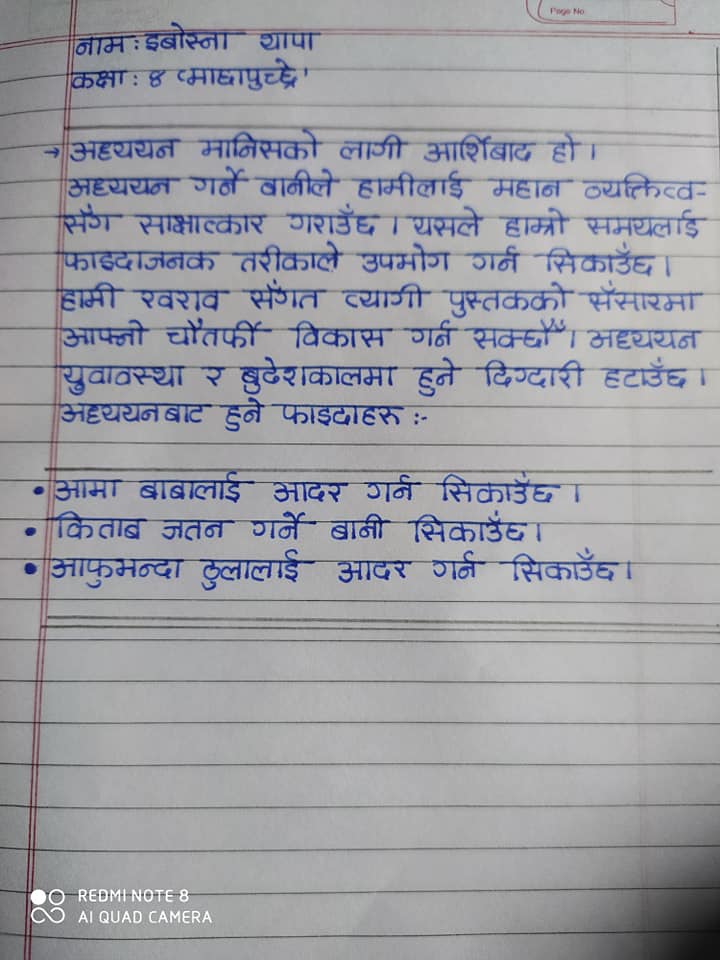 Page No.
नाम : इबोस्ना थापा
कक्षा : ४ 'माछापुच्छ्रे'
→ अध्ययन मानिसको लागी आर्शिबाद हो ।
अध्ययन गर्ने बानीले हामीलाई महान व्यक्तित्व-
सँग साक्षात्कार गराउँछ । यसले हाम्रो समयलाई
फाइदाजनक तरीकाले उपभोग गर्न सिकाउँछ ।
हामी खराव सँगत त्यागी पुस्तकको सँसारमा
आफ्नो चौतर्फी विकास गर्न सक्छौँ । अध्ययन
युवावस्था र बुढेशकालमा हुने दिग्दारी हटाउँछ ।
अध्ययनबाट हुने फाइदाहरु :-
• आमा बाबालाई आदर गर्न सिकाउँछ ।
• किताब जतन गर्ने बानी सिकाउँछ ।
• आफुभन्दा ठुलालाई आदर गर्न सिकाउँछ ।
REDMI NOTE 8
AI QUAD CAMERA